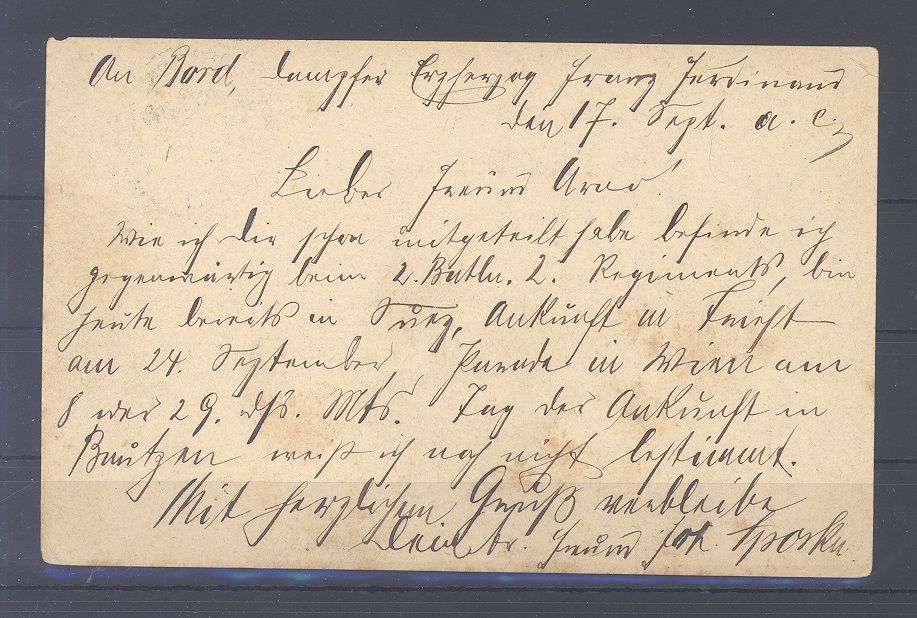 An Bord, Dampfer Erzherzog Franz Ferdinand
den 17. Sept. a. c.
Lieber Freund Arno!
Wie ich Dir schon mitgeteilt habe befinde ich
gegenwärtig beim 2. Batln. 2. Regiments, bin
heute bereits in Suez, Ankunft in Triest
am 24. September, Parade in Wien am
8 oder 29. dss. Mts. Tag der Ankunft in
Bautzen weiß ich noch nicht bestimmt.
Mit herzlichem Gruß verbleibe
Dein Freund Joh.